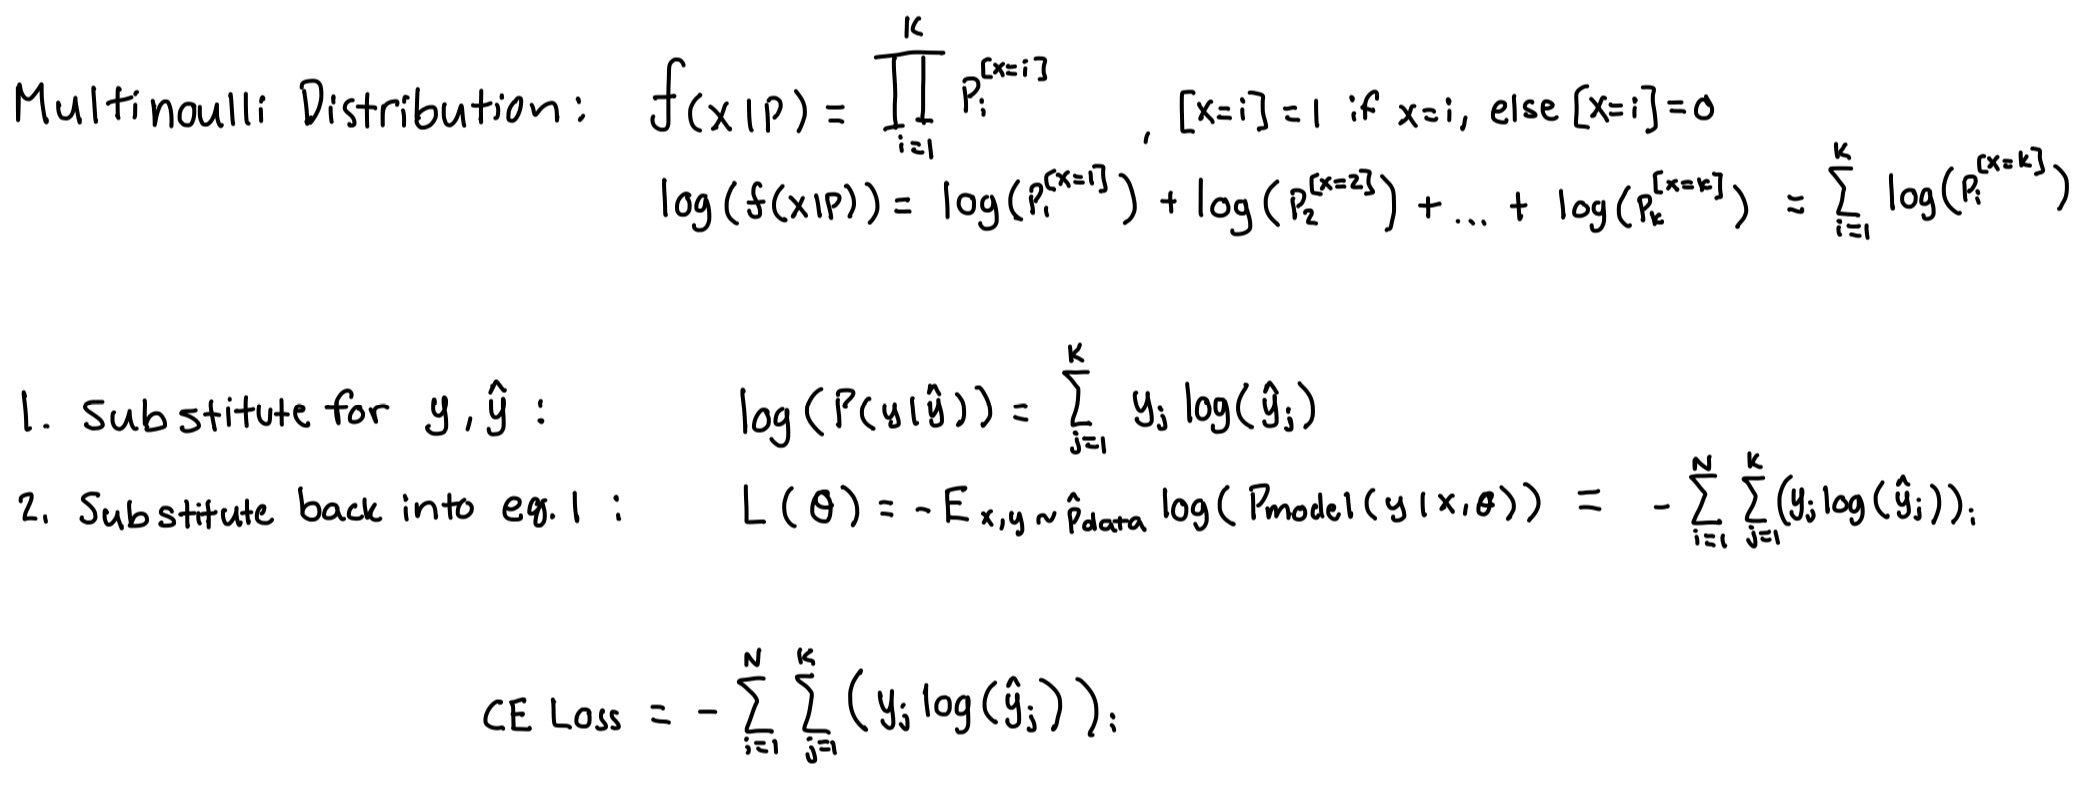 Multinoulli Distribution: f(x|p) = ∏_{i=1}^{K} P_i^{[x=i]} , [x=i]=1 if x=i, else [x=i]=0
log(f(x|p)) = log(P_1^{[x=1]}) + log(P_2^{[x=2]}) + ... + log(P_k^{[x=k]}) = ∑_{i=1}^{K} log(P_i^{[x=k]})
1. Substitute for y, ŷ : log(P(y|ŷ)) = ∑_{j=1}^{K} y_j log(ŷ_j)
2. Substitute back into eq. 1 : L(θ) = -E_{x,y~p̂data} log(Pmodel(y|x,θ)) = -∑_{i=1}^{N} ∑_{j=1}^{K} (y_j log(ŷ_j))_i
CE Loss = -∑_{i=1}^{N} ∑_{j=1}^{K} (y_j log(ŷ_j))_i